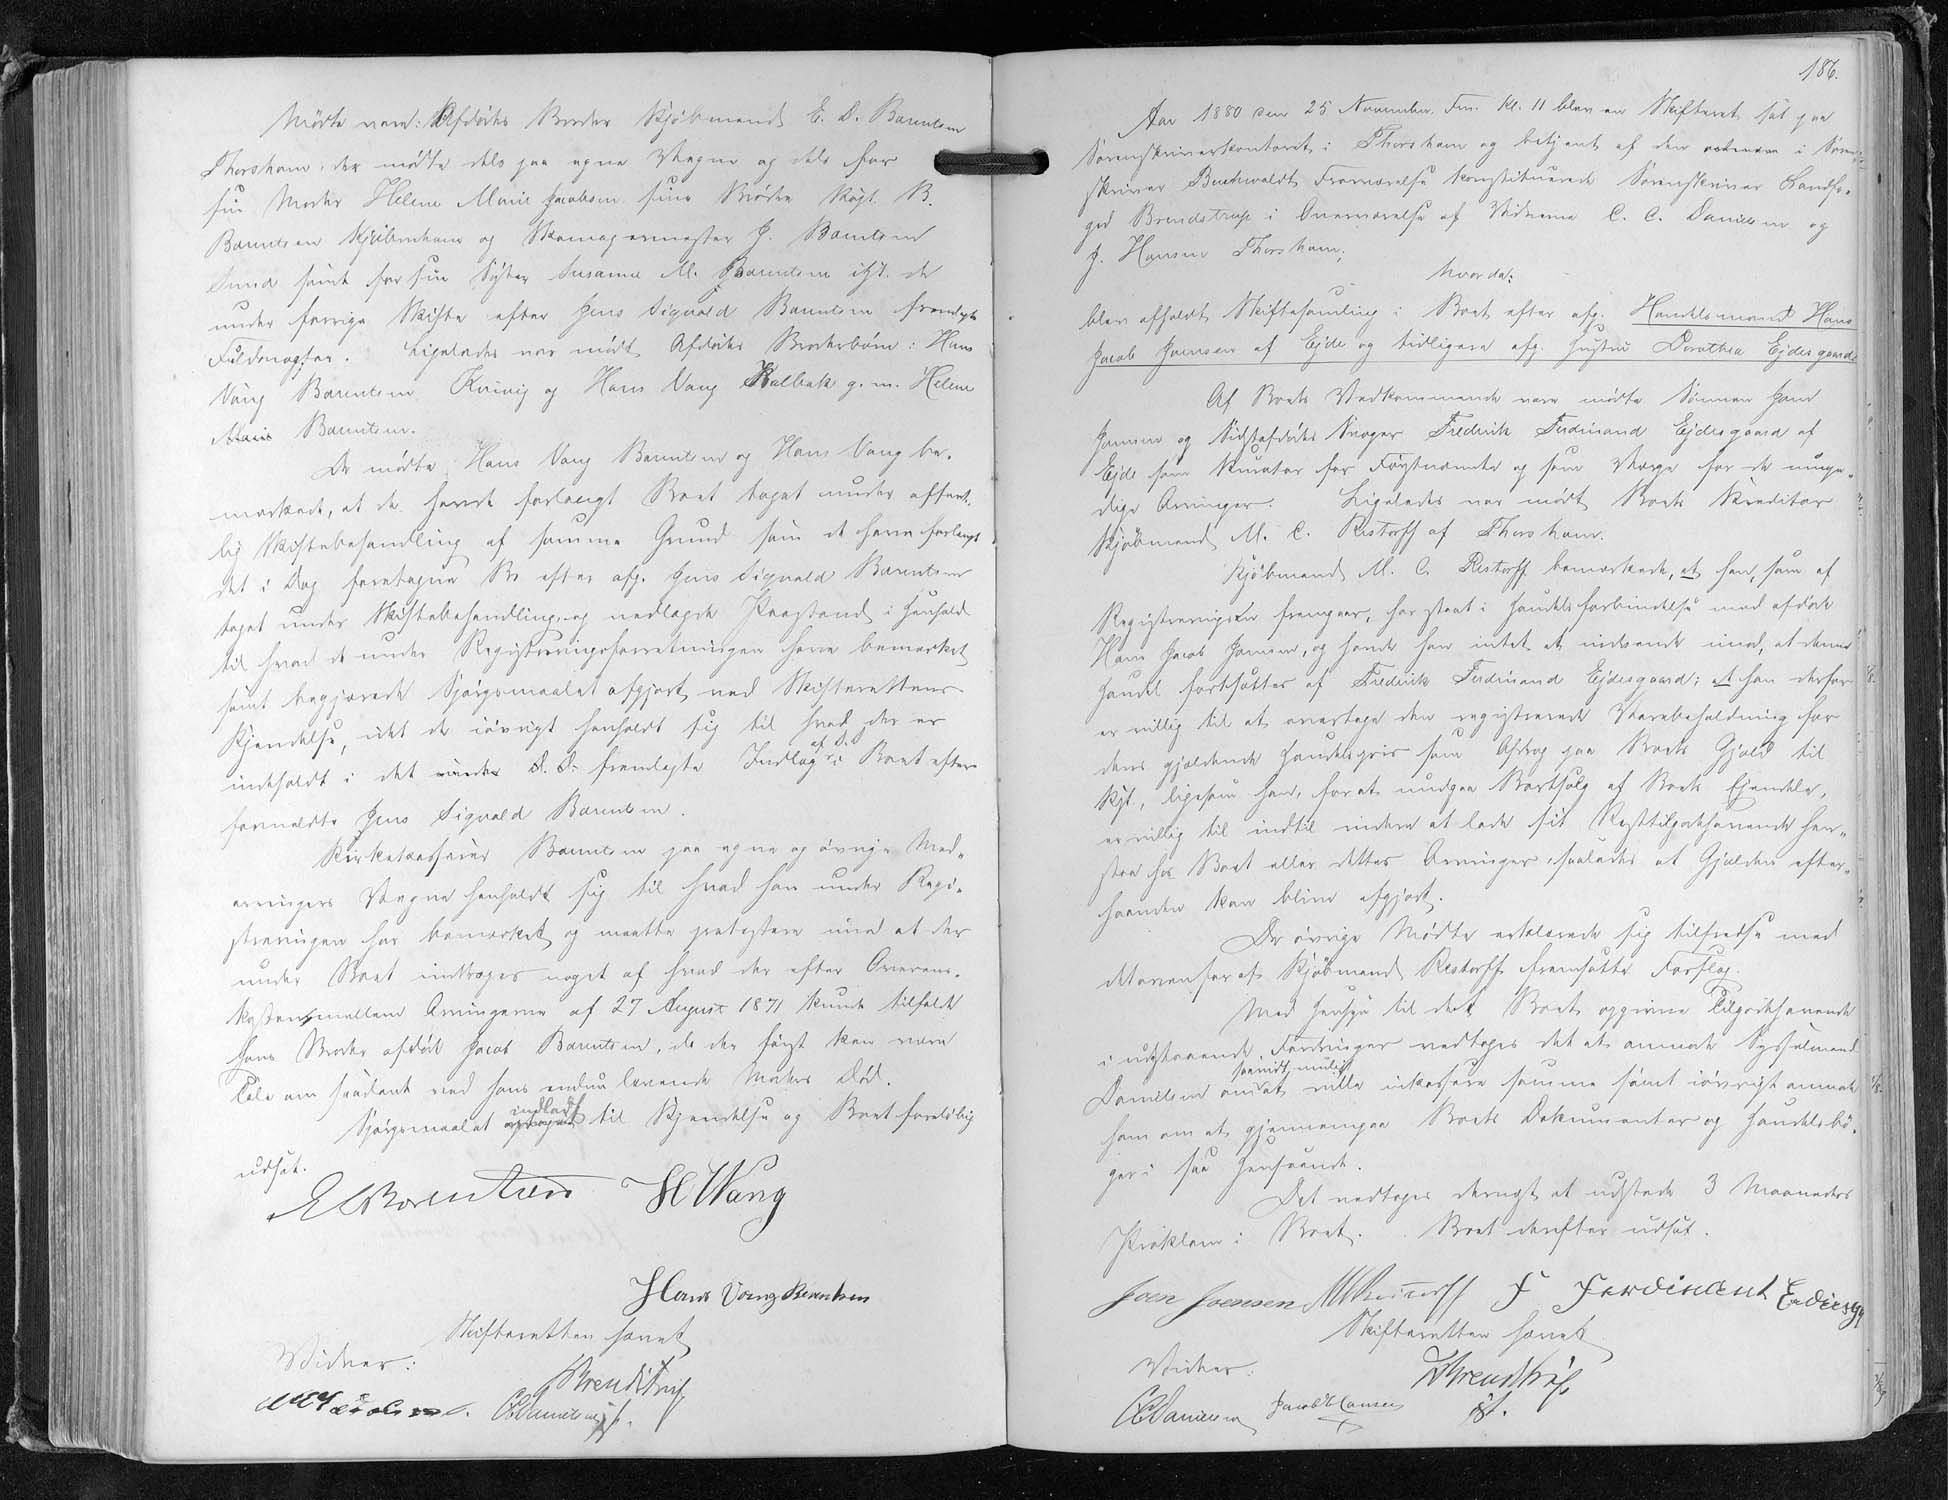 Mødte vare: Afdødes Broder Kjøbmand E. D. Barentsen
Thorshavn, der mødte dels paa egne Vegne og dels for
sin Moder Helene Marie Jacobsen, sine Brødre Kapt. B.
Barentsen Kjøbenhavn og Skomagermester J. Barentsen
Sund samt for sin Søster Susanne M. Barentsen ifgl. de
under forrige Skifte efter Jens Sigvald Barentsen fremlagte
Fuldmagter. Ligeledes var mødt Afdødes Broderbørn: Hans
Vang Barentsen Kvivig og Hans Vang Kalbak g. m. Helene
Marie Barentsen.
De mødte Hans Vang Barentsen og Hans Vang be-
mærkede, at de havde forlangt Boet taget under offent-
lig Skiftebehandling af samme Grund som de have forlangt
det i Dag foretagne Bo efter afg. Jens Sigvald Barentsen
taget under Skiftebehandling, og nedlagde Paastand i Henhold
til hvad de under Registreringsforretningen have bemærket
samt begjærede Spørgsmaalet afgjort ved Skifterettens
Kjendelse, idet de iøvrigt henholdt sig til hvad der er
indeholdt i det under D. D. fremlagte Indlæg af D. D. i Boet efter
fornævnte Jens Sigvald Barentsen.
Kirkekasserer Barentsen paa egne og øvrige Med-
arvingers Vegne henholdt sig til hvad han under Regi-
streringen har bemærket og maatte protestere imod at der
under Boet inddrages noget af hvad der efter Overens-
komsten mellem Arvingerne af 27 August 1871 kunde tilfalde
hans Broder afdøde Jacob Barentsen, da der først kan være
Tale om saadant ved hans endnu levende Moders Død.
Spørgsmaalet optaget indladt til Kjendelse og Boet foreløbig
udsat.
E Barentsen H Wang
Hans Vang Barentsen
Skifteretten hævet
Vidner: Brendstrup
CCDanielsen
186.
Aar 1880 den 25 November Fm. Kl. 11 blev en Skifteret sat paa
Sorenskriverkontoret i Thorshavn og betjent af den i Soren-
skriver Buchwaldts Fraværelse konstituerede Sorenskriver Landfo-
ged Brendstrup i Overværelse af Vidnerne C. C. Danielsen og
J. Hansen Thorshavn;
hvorda:
blev afholdt Skiftesamling i Boet efter afg. Handelsmand Hans
Jacob Joensen af Ejde og tidligere afg. Hustru Dorothea Ejdesgaard
Af Boets Vedkommende vare mødte Sønnen Joen
Joensen og Sidstafdødes Svoger Frederik Ferdinand Ejdesgaard af
Ejde som Kurator for Førstnævnte og som Værge for de umyn-
dige Arvinger. Ligeledes var mødt Boets Kreditor
Kjøbmand M. C. Restorff af Thorshavn.
Kjøbmand M. C. Restorff bemærkede, at han, som af
Registreringen fremgaar, har staaet i Handelsforbindelse med afdøde
Hans Jacob Joensen, og havde han intet at indvende imod, at denne
Handel fortsættes af Frederik Ferdinand Ejdesgaard; at han derfor
er villig til at overtage den registrerede Varebeholdning for
dens gjældende Handelspris som Afdrag paa Boets Gjæld til
Kpt., ligesom han, for at undgaa Bortsalg af Boets Ejendele,
er villig til indtil videre at lade sit Resttilgodehavende hen-
staa hos Boet eller dettes Arvinger, saaledes at Gjælden efter-
haanden kan blive afgjort.
De øvrige Mødte erklærede sig tilfredse med
det ovenfor af Kjøbmand Restorff fremsatte Forslag.
Med Hensyn til det Boets opgivne Tilgodehavende
i udestaaende Fordringer vedtoges det at anmode Sysselmand
Danielsen om at saavidt muligt ville inkassere samme samt iøvrigt anmode
ham om at gjennemgaa Boets Dokumenter og Handelsbø-
ger i saa Henseende.
Det vedtoges dernæst at udstede 3 Maaneders
Proklama i Boet. Boet derefter udsat.
Joen Joensen MCRestorff F Ferdinant
Skifteretten hævet
Vidner: Brendstrup
CCDanielsen Jacob Hansen kst.